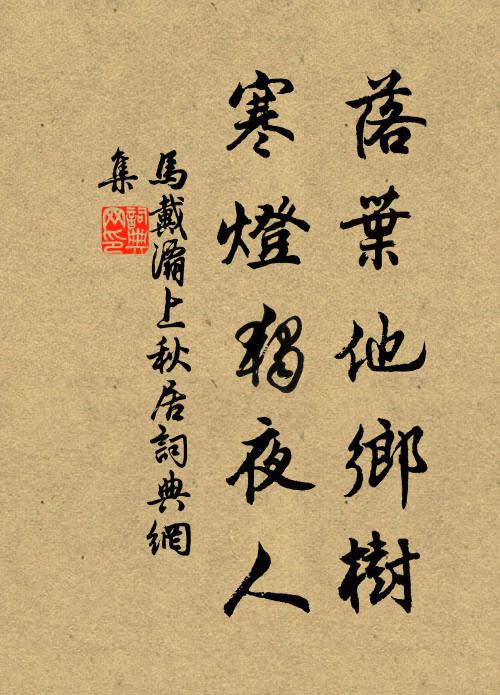 落葉他鄉樹
寒燈獨夜人
馬戴灞上秋居詞典網
集
詞典
网印